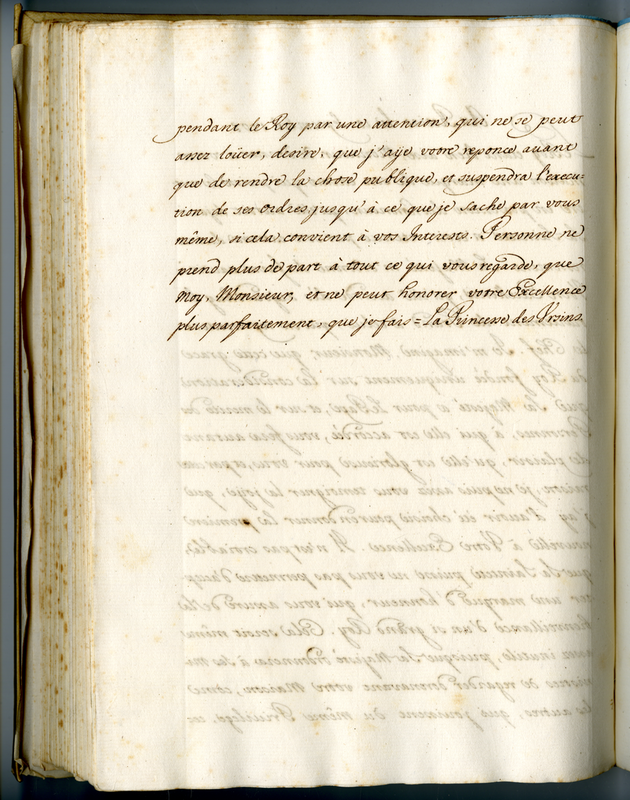 pendant le Roy par une attention, qui ne se peut
assez loüer, desire, que j'aÿe votre reponce avant
que de rendre la chose publique, et suspendra l'execu=
tion de ses ordres jusqu'à ce que je sache par vous
même, si cela convient à vos Interests. Personne ne
prend plus de part à tout ce qui vous regarde, que
moy, Monsieur, et ne peut honorer votre Excellence
plus parfaitement, que je fais = La Princesse des Ursins.